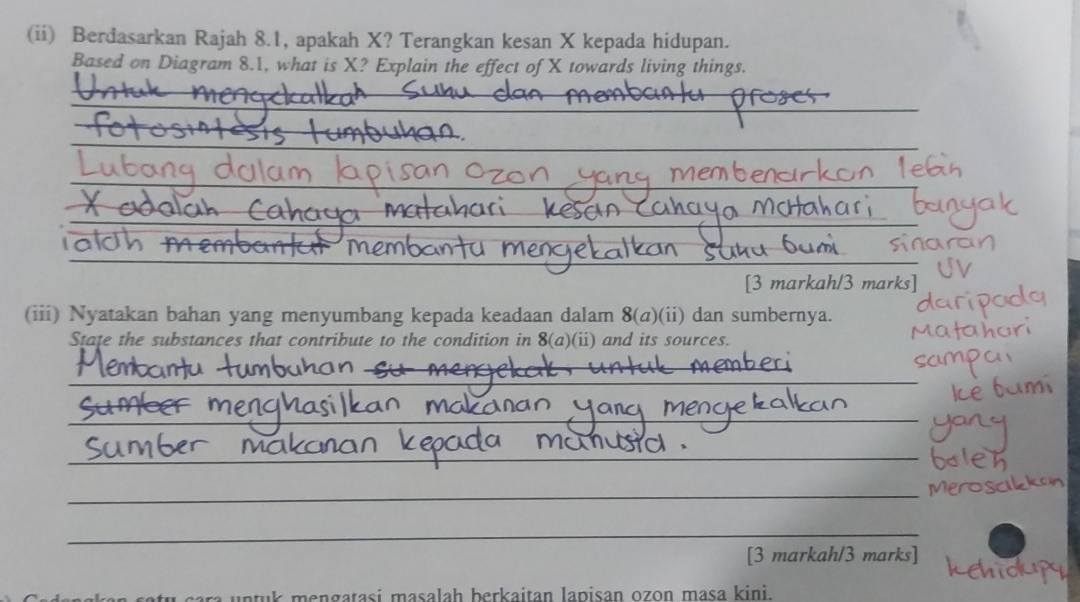 (ii) Berdasarkan Rajah 8.1, apakah X? Terangkan kesan X kepada hidupan.
Based on Diagram 8.1, what is X? Explain the effect of X towards living things.
Untuk mengekalkan suhu dan membantu proses
fotosintesis tumbuhan.
Lubang dalam lapisan ozon yang membenarkan lebih
X adalah cahaya matahari kesan cahaya matahari banyak
ialah membantut membantu mengekalkan suhu bumi sinaran
UV
[3 markah/3 marks]
daripada
(iii) Nyatakan bahan yang menyumbang kepada keadaan dalam 8(a)(ii) dan sumbernya.
Matahari
State the substances that contribute to the condition in 8(a)(ii) and its sources.
Membantu tumbuhan su mengekalk, untuk memberi
sampai
ke bumi
sumber menghasilkan makanan yang mengekalkan
yang
sumber makanan kepada manusia.
boleh
Merosakkan
[3 markah/3 marks]
satu cara untuk mengatasi masalah berkaitan lapisan ozon masa kini.